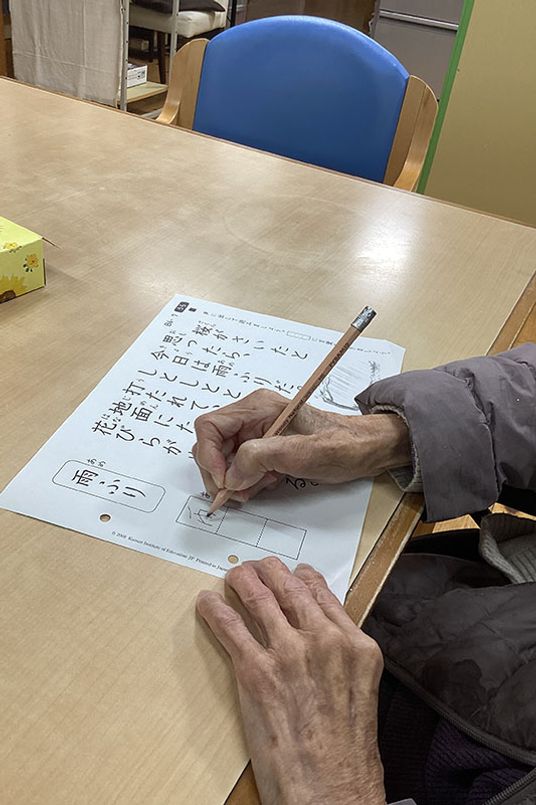 桜がさいたと
思ったら、
今日は雨ふりだ。
しとしとと
打たれて
地面にた
花びらが
る。
あめ
雨ふり
Kumon Institute of Education
Printed in Japan